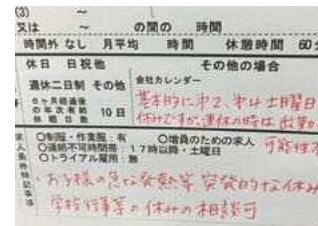 (3) ～
又は ～ の間の 時間
時間外 なし 月平均 時間 休憩時間 60
休日 日祝他 その他の場合
週休二日制 その他 会社カレンダー
6ヶ月経過後の年次有給休暇日数 10日
基本的に第2、第4土曜日
休みですが、連休の時は出勤
〇制服・作業服:有 〇増員のための求人 可能性
〇連絡不可時間帯:17時以降・土曜日
〇トライアル雇用:無
求人条件特記事項
お子様の急な発熱等 突発的な休み
学校行事等の休みの相談可